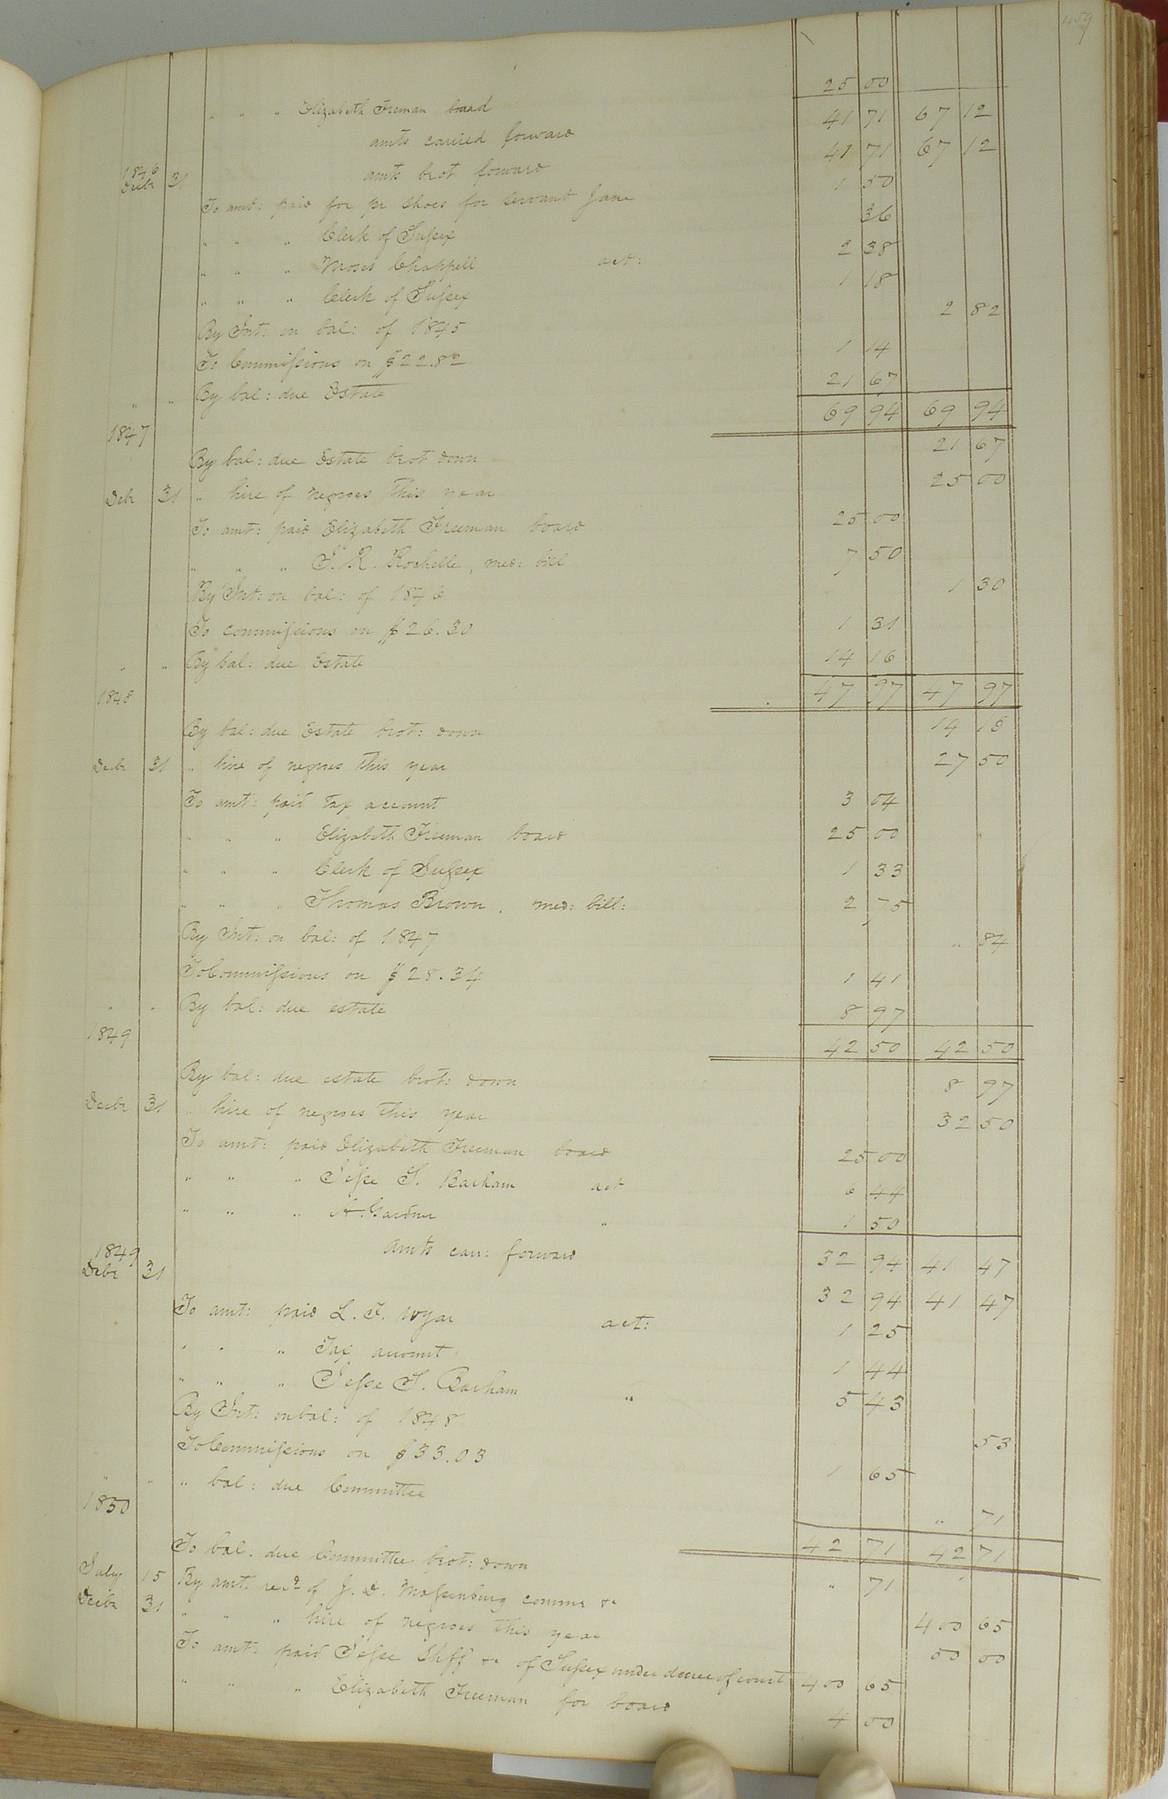 459
" " " Elizabeth Freeman board 25 00
amts carried forward 41 71 67 12
1846 Decbr 31 amts brot forward 41 71 67 12
To amt: paid for pr shoes for servant Jane 1 50
" " " Clerk of Sussex 36
" " " Moses Chappell act: 2 38
" " " Clerk of Sussex 1 18
By Int: on bal: of 1845 2 82
To Commissions on $22.82 1 14
" " By bal: due Estate 21 67
69 94 69 94
1847
By bal: due Estate brot down 21 67
Debr 31 " hire of negroes this year 25 00
To amt: paid Elizabeth Freeman board 25 00
" " " J. R. Rochelle, med: bill 7 50
By Int: on bal: of 1846 1 30
To commissions on $26.30 1 31
" " By bal: due Estate 14 16
47 97 47 97
1848
By bal: due Estate brot: down 14 16
Decbr 31 " hire of negroes this year 27 50
To amt: paid tax account 3 04
" " " Elizabeth Freeman board 25 00
" " " Clerk of Sussex 1 33
" " " Thomas Brown, med: bill: 2 75
By Int: on bal: of 1847 " 84
To Commissions on $28.34 1 41
" " By bal: due estate 8 97
42 50 42 50
1849
By bal: due estate brot: down 8 97
Decbr 31 " hire of negroes this year 32 50
To amt: paid Elizabeth Freeman board 25 00
" " " Jesse S. Barham act 6 44
" " " A. Gardner " 1 50
amts carr: forward 32 94 41 47
1849 Debr 31 32 94 41 47
To amt: paid L. F. Wyar act: 1 25
" " " Tax account 1 44
" " " Jesse S. Barham " 5 43
By Int: on bal: of 1848 53
To Commissions on $33.03 1 65
" " " bal: due Committee " 71
42 71 42 71
1850
To bal. due Committee brot: down " 71
July 15 By amt: recd of J. D. Massenburg comms &c 400 65
Decbr 31 " " " hire of negroes this year 50 00
To amt: paid Jesse Shff &c of Sussex under decree of court 400 65
" " " Elizabeth Freeman for board 4 00